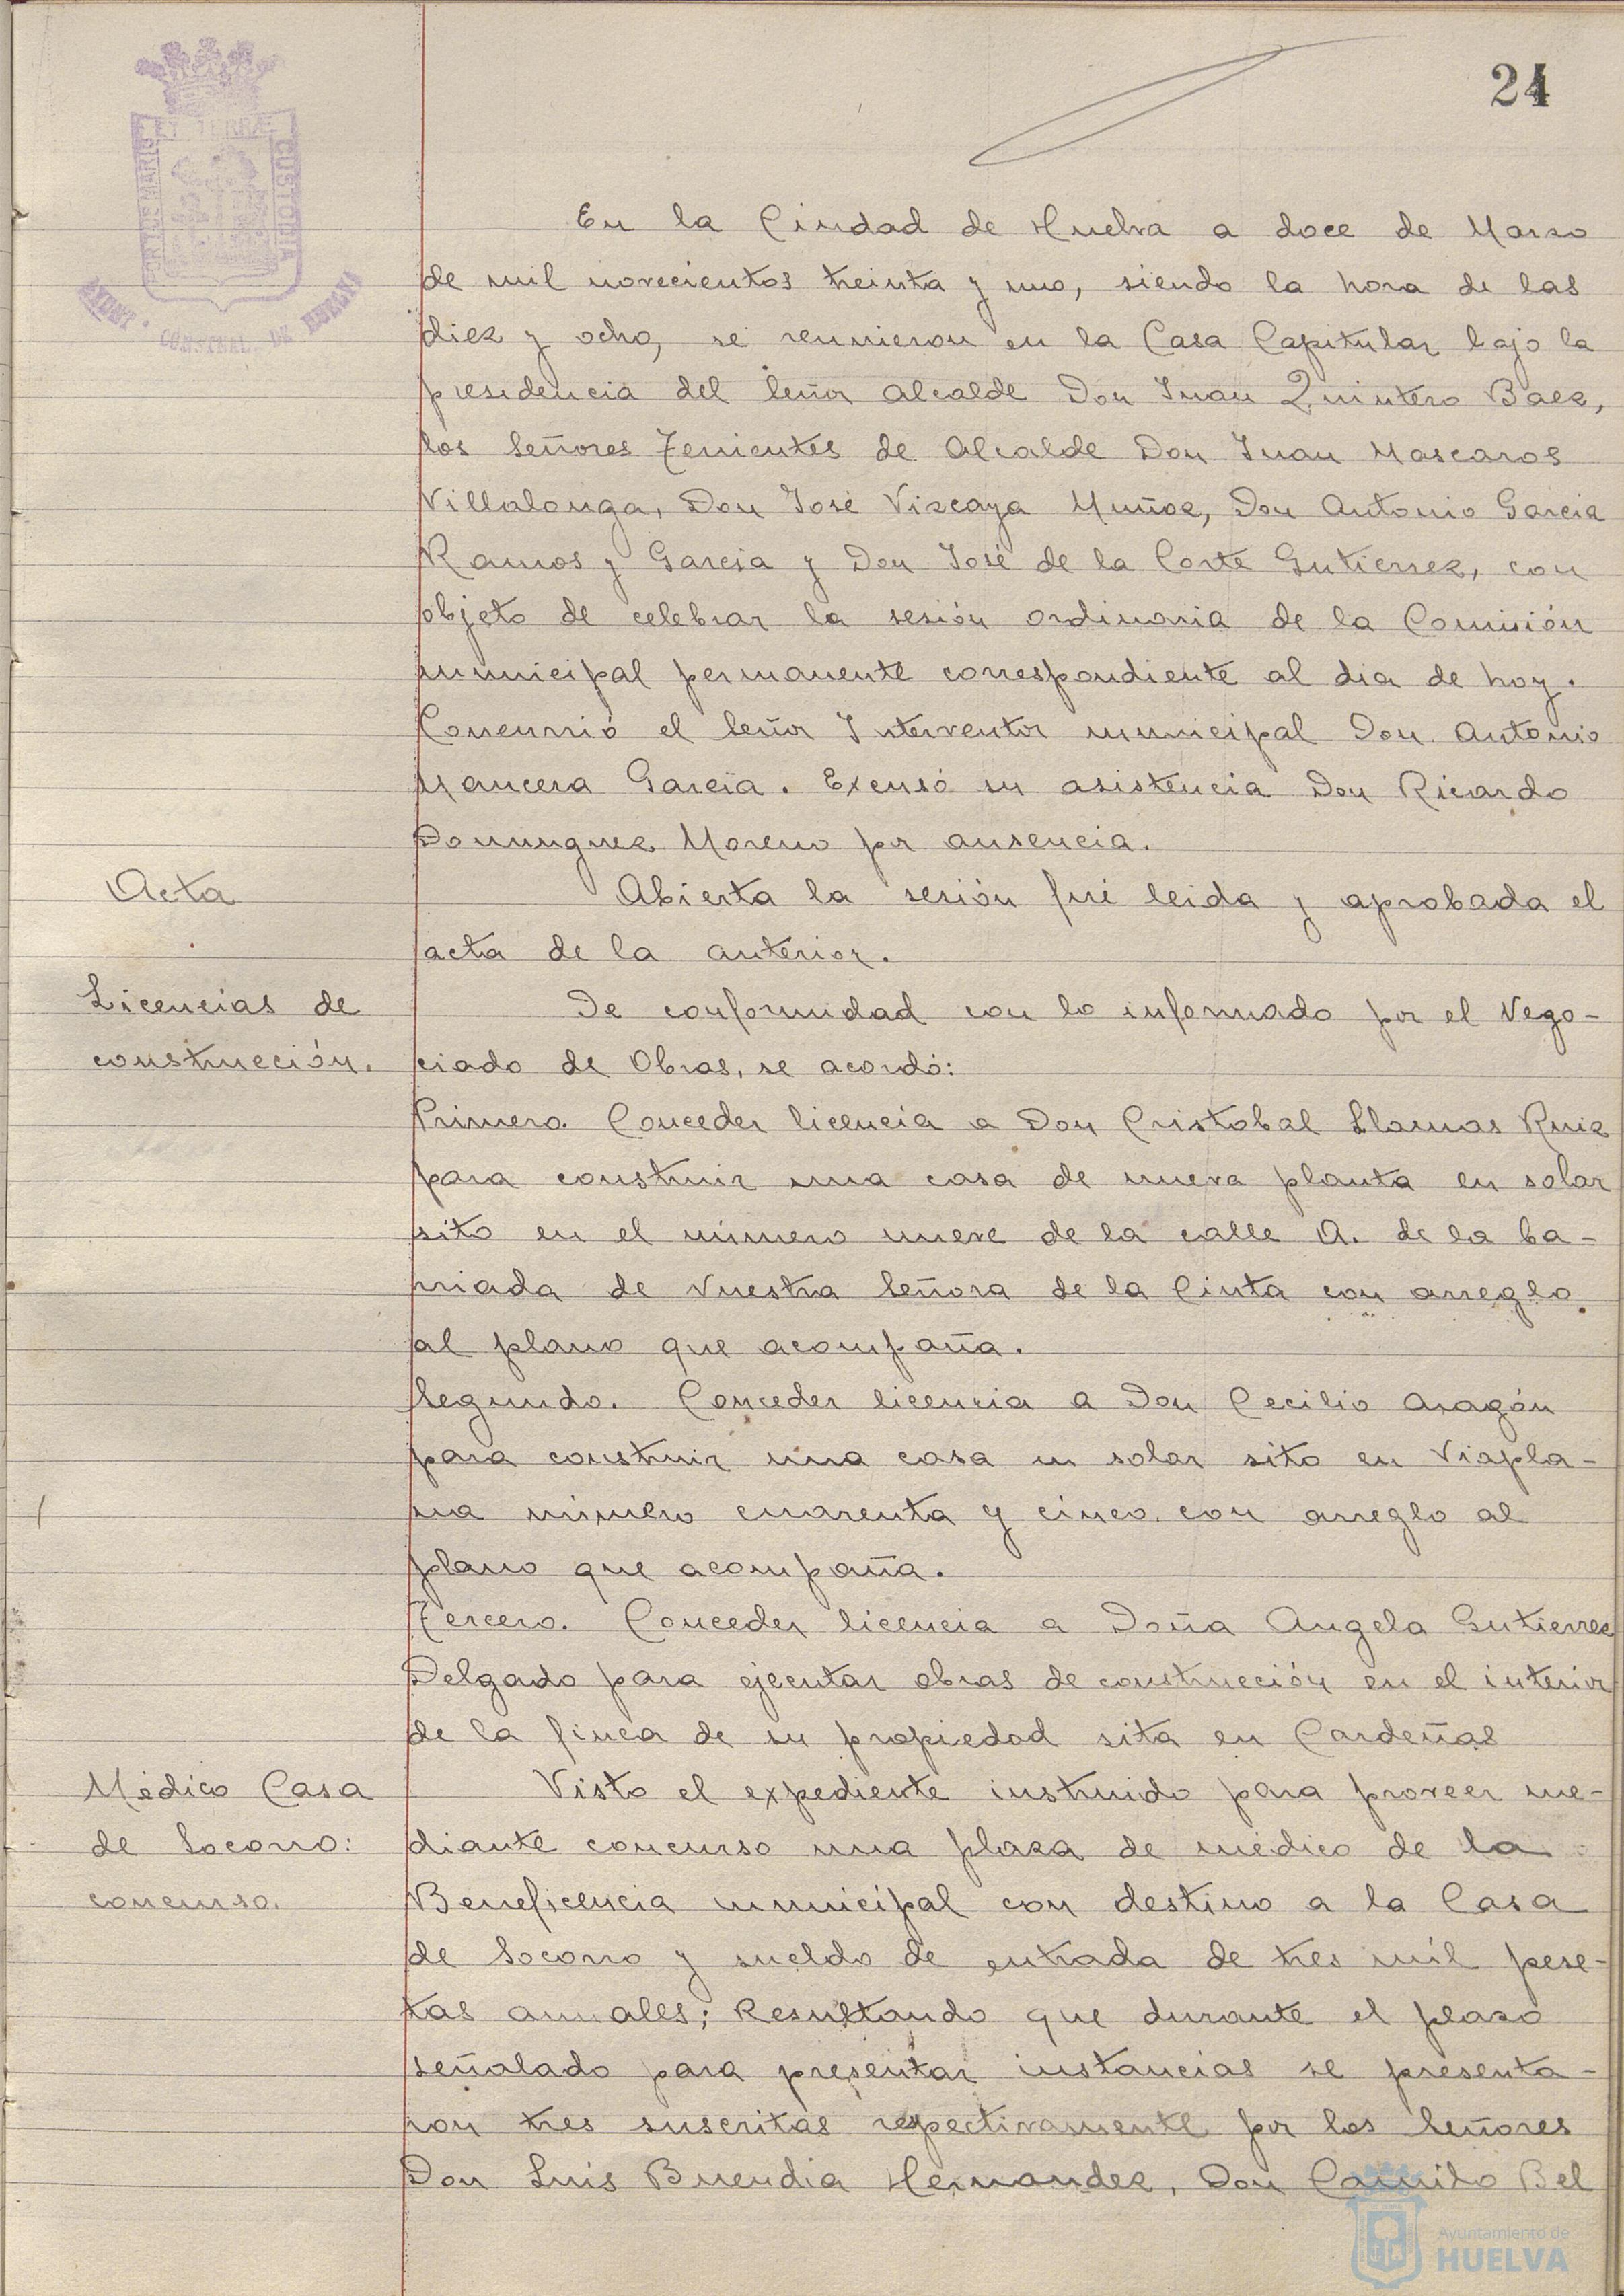 24
PORTUS MARIS ET TERRÆ CUSTODIA
AYUNT. CONSTNAL. DE HUELVA
En la Ciudad de Huelva a doce de Marzo
de mil novecientos treinta y uno, siendo la hora de las
diez y ocho, se reunieron en la Casa Capitular bajo la
presidencia del Señor Alcalde Don Juan Quintero Baez,
los Señores Tenientes de Alcalde Don Juan Mascaros
Villalonga, Don José Vizcaya Muñoz, Don Antonio Garcia
Ramos y Garcia y Don José de la Corte Gutierrez, con
objeto de celebrar la sesión ordinaria de la Comisión
municipal permanente correspondiente al dia de hoy.
Concurrió el Señor Interventor municipal Don Antonio
Mancera García. Excusó su asistencia Don Ricardo
Dominguez Moreno por ausencia.
Acta
Abierta la sesión fué leida y aprobada el
acta de la anterior.
Licencias de
construcción.
De conformidad con lo informado por el Nego-
ciado de Obras, se acordó:
Primero. Conceder licencia a Don Cristobal Llamas Ruiz
para construir una casa de nueva planta en solar
sito en el número nueve de la calle A. de la ba-
rriada de Nuestra Señora de la Cinta con arreglo
al plano que acompaña.
Segundo. Conceder licencia a Don Cecilio Aragón
para construir una casa en solar sito en Viapla-
na número cuarenta y cinco con arreglo al
plano que acompaña.
Tercero. Conceder licencia a Doña Angela Gutierrez
Delgado para ejecutar obras de construcción en el interior
de la finca de su propiedad sita en Cardeñas
Médico Casa
de Socorro:
concurso.
Visto el expediente instruido para proveer me-
diante concurso una plaza de médico de la
Beneficencia municipal con destino a la Casa
de Socorro y sueldo de entrada de tres mil pese-
tas anuales; Resultando que durante el plazo
señalado para presentar instancias se presenta-
ron tres suscritas respectivamente por los Señores
Don Luis Buendia Hernandez, Don Camilo Bel
Ayuntamiento de
HUELVA